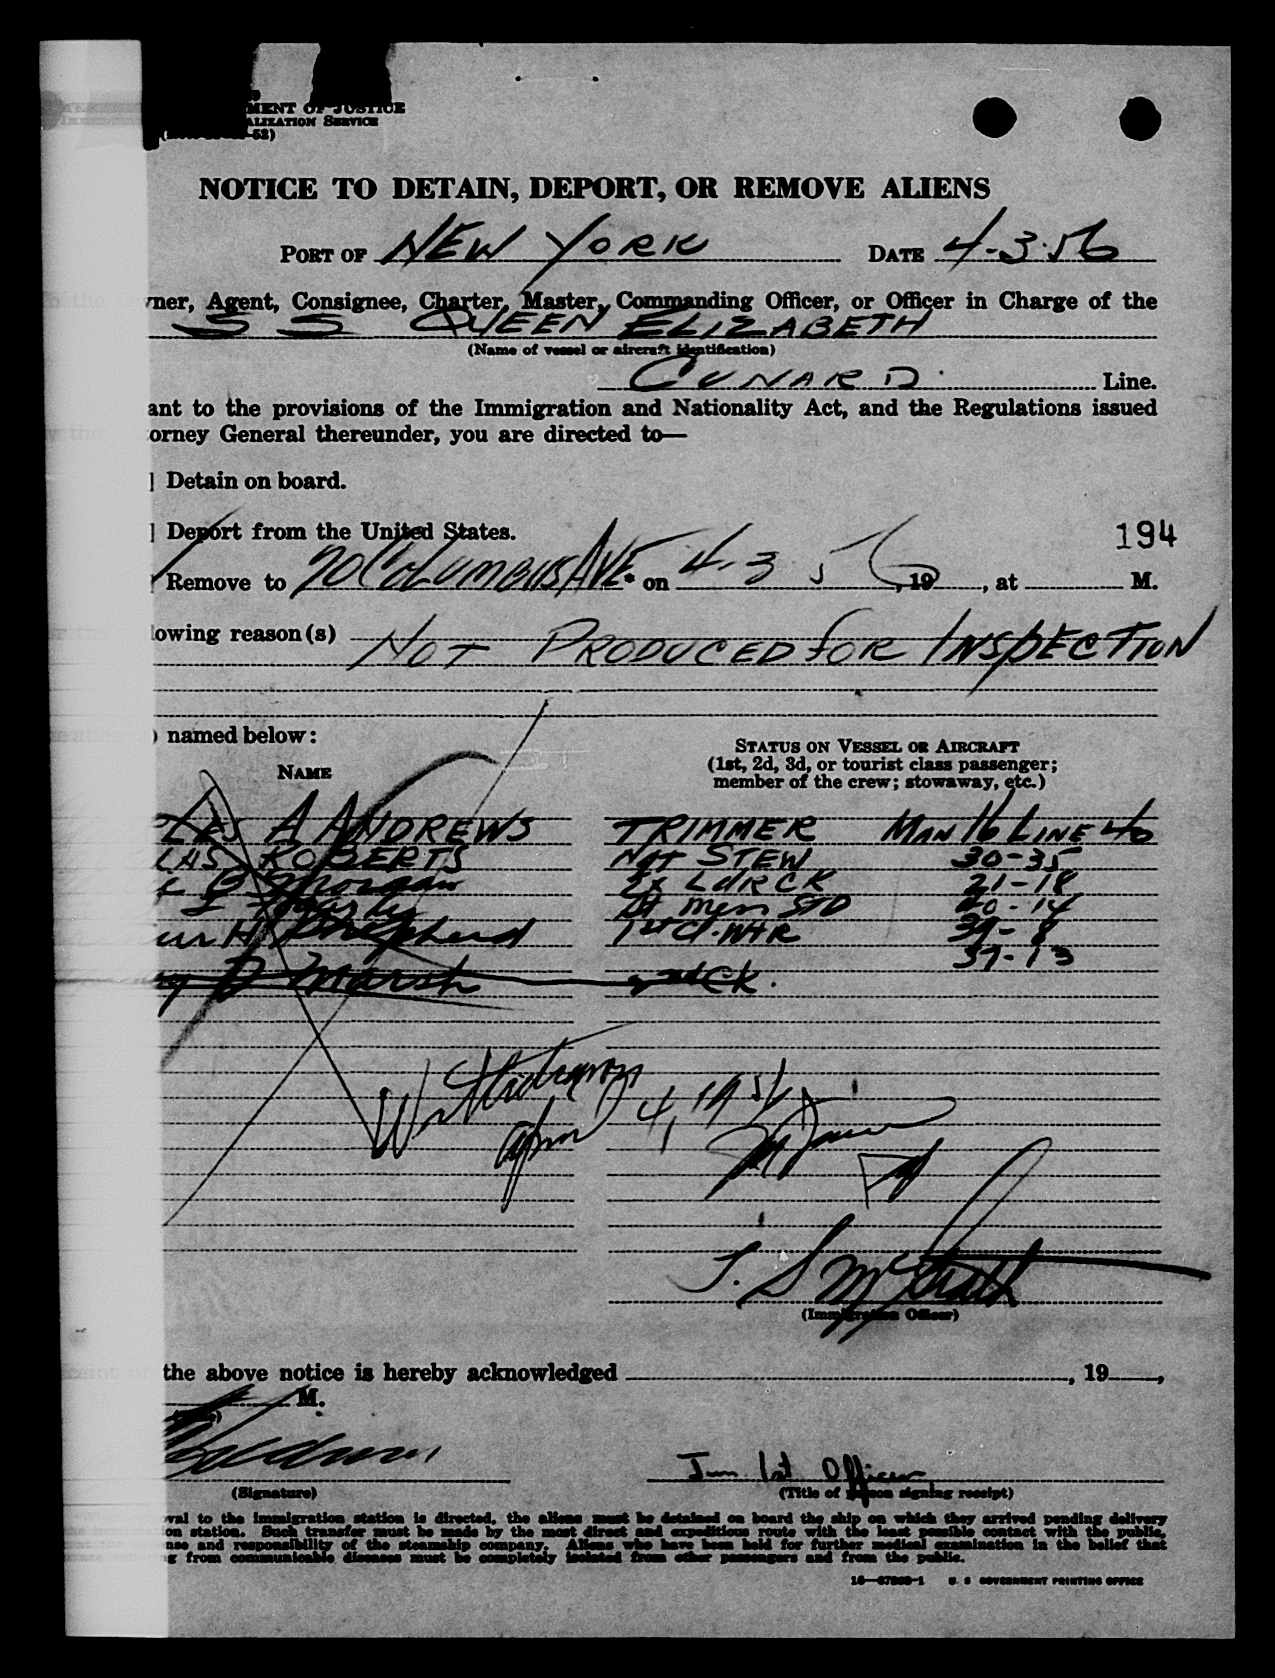 MENT OF JUSTICE
ALIZATION SERVICE
NOTICE TO DETAIN, DEPORT, OR REMOVE ALIENS
PORT OF NEW YORK DATE 4-3-56
ner, Agent, Consignee, Charter, Master, Commanding Officer, or Officer in Charge of the
SS QUEEN ELIZABETH
(Name of vessel or aircraft identification)
CUNARD Line.
ant to the provisions of the Immigration and Nationality Act, and the Regulations issued
orney General thereunder, you are directed to—
] Detain on board.
] Deport from the United States.
194
Remove to 70 COLUMBUS AVE * on 4-3 56, 19 , at M.
lowing reason(s) NOT PRODUCED FOR INSPECTION
) named below:
STATUS ON VESSEL OR AIRCRAFT
(1st, 2d, 3d, or tourist class passenger;
member of the crew; stowaway, etc.)
NAME
LES A ANDREWS TRIMMER MAN 16 LINE 40
LAS ROBERTS Ngt STEW 30-35
Morgan 21-18
STD 40-14
ur H Shepherd 1st Cl. WTR 39-8
37-13
y D Marsh 2nd CK.
Withdrawn
April 4, 1956
T. S McGrath
(Immigration Officer)
the above notice is hereby acknowledged , 19 ,
M.
(Signature)
Jun 1st Officer
(Title of person signing receipt)
val to the immigration station is directed, the aliens must be detained on board the ship on which they arrived pending delivery
on station. Such transfer must be made by the most direct and expeditious route with the least possible contact with the public,
nse and responsibility of the steamship company. Aliens who have been held for further medical examination in the belief that
g from communicable diseases must be completely isolated from other passengers and from the public.
U. S. GOVERNMENT PRINTING OFFICE